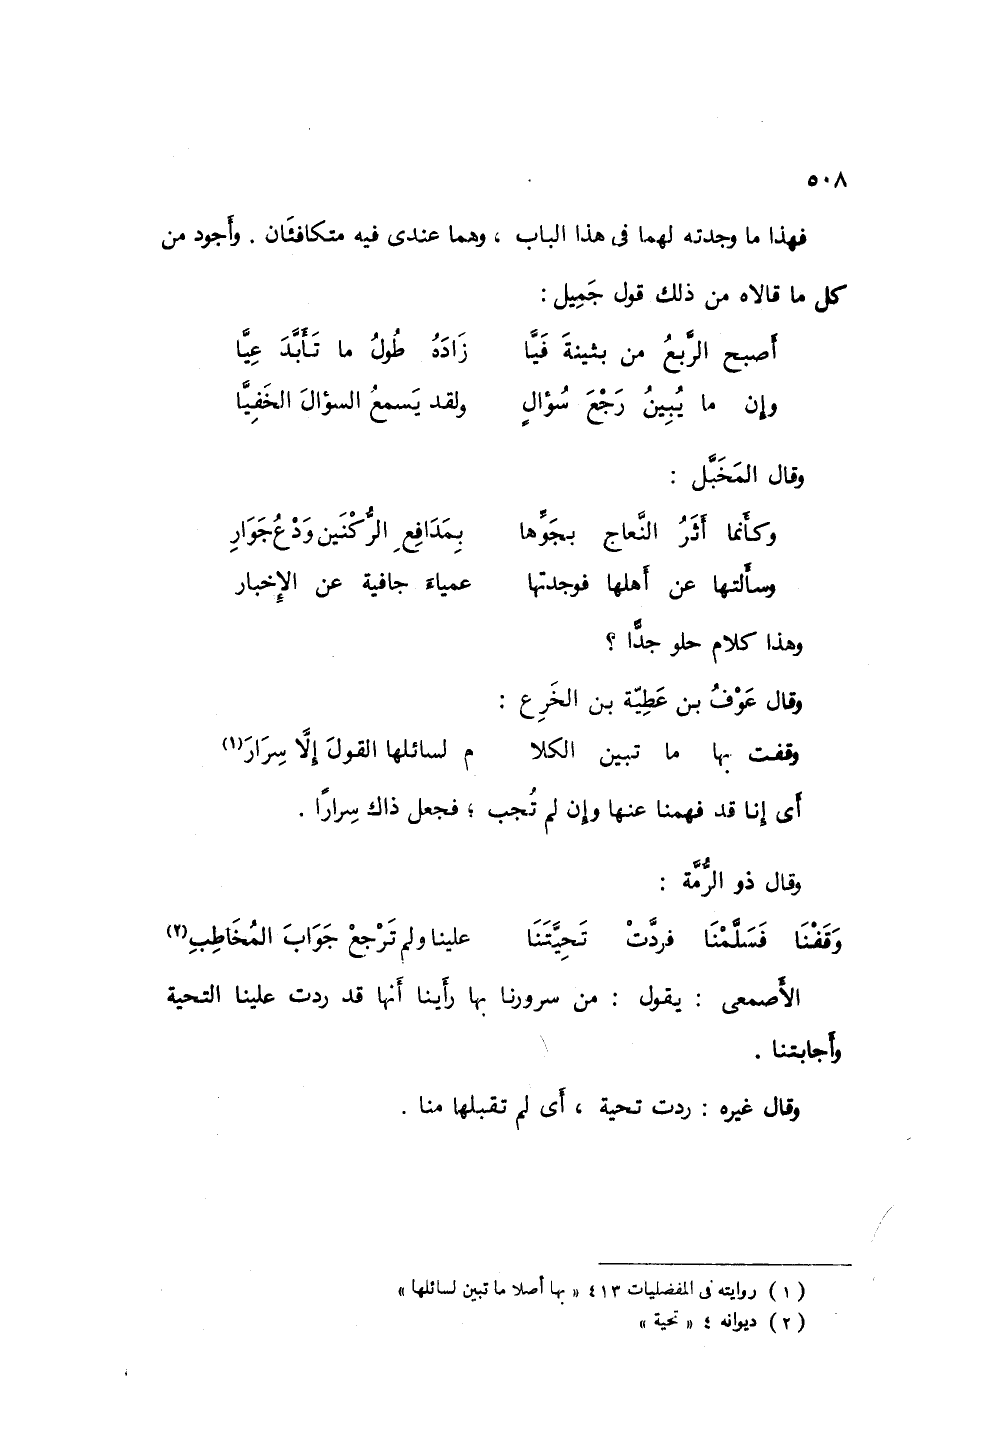 ٥٠٨
فهذا ما وجدته لهما فى هذا الباب ، وهما عندى فيه متكافئان . وأَجود من
كل ما قالاه من ذلك قول جَمِيل :
أَصبح الرَّبعُ من بثينةَ فَيَّا زَادَهُ طُولُ ما تَأَبَّدَ عِيَّا
وإِن ما يُبِينُ رَجْعَ سُؤالٍ ولقد يَسمعُ السؤالَ الخَفِيَّا
وقال المَخَبَّل :
وكأَنما أَثَرُ النَّعاج بجَوِّها بِمَدَافِعِ الرُّكْنَين وَدْعُ جَوَارِ
وسأَلتها عن أَهلها فوجدتها عمياءَ جافية عن الإِخبار
وهذا كلام حلو جدًّا ؟
وقال عَوْفُ بن عَطِيّة بن الخَرِع :
وقفت بها ما تبين الكلا م لسائلها القولَ إِلَّا سِرَارَ(١)
أَى إِنا قد فهمنا عنها وإِن لم تُجب ؛ فجعل ذاك سِرارًا .
وقال ذو الرُّمَّة :
وَقَفْنَا فَسَلَّمْنَا فردَّتْ تَحيَّتَنَا علينا ولم تَرْجعْ جَوَابَ المُخَاطِبِ(٢)
الأَصمعى : يقول : من سرورنا بها رأَينا أَنها قد ردت علينا التحية
وأَجابتنا .
وقال غيره : ردت تحية ، أَى لم تقبلها منا .
(١) روايته فى المفضليات ٤١٣ « بها أصلا ما تبين لسائلها »
(٢) ديوانه ٤ « تحية »